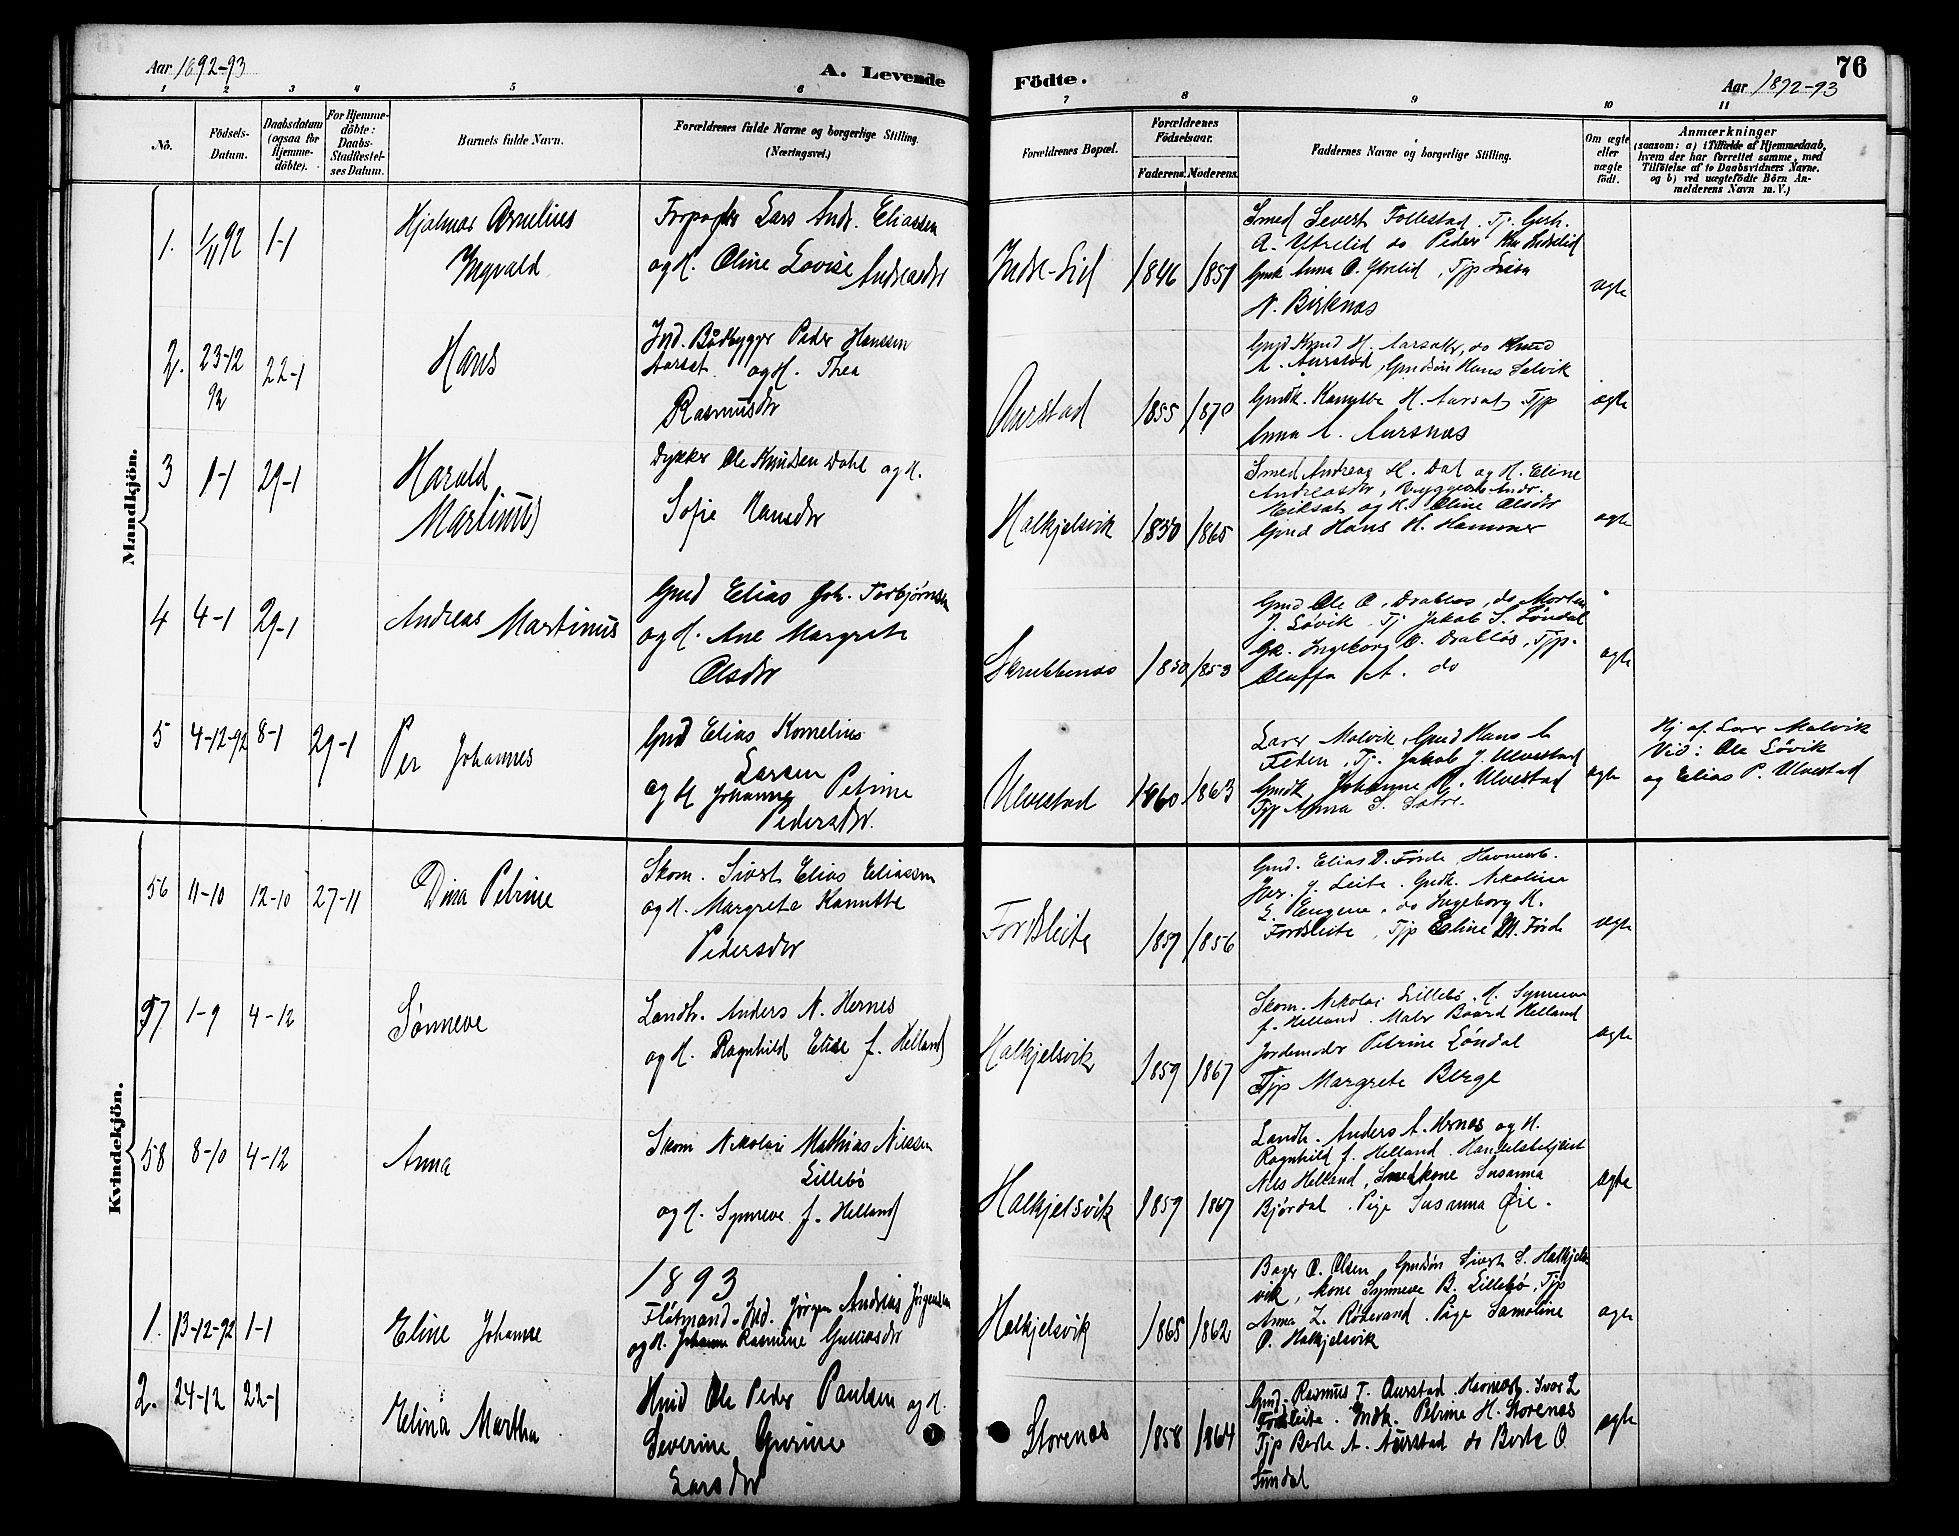 Aar 1892-93
A. Levende
Födte.
Aar 1892-93
76
1 2 3 4 5 6 7 8 9 10 11
No.
Födsels-
Datum.
Daabsdatum
(ogsaa for
Hjemme-
döbte).
For Hjemme-
döbte:
Daabs-
Stadfestel-
ses Datum.
Barnets fulde Navn.
Forældrenes fulde Navne og borgerlige Stilling.
(Næringsvei.)
Forældrenes Bopæl.
Forældrenes
Födselsaar.
Faderens. Moderens.
Faddernes Navne og borgerlige Stilling.
Om ægte
eller
uægte
födt.
Anmærkninger
(saasom: a) i Tilfælde af Hjemmedaab,
hvem der har forrettet samme, med
Tilföielse af to Daabsvidners Navne.
og b) ved uægtefödte Börn An-
melderens Navn m. V.)
Mandkjön.
1. 1/11 92 1-1
Hjalmar Cornelius
Ingvald
Lars Andr. Eliassen
og H. Oline Lovise Andreasdr
Indre-Lid
1846 1851
Smed Severt Follestad. Tj. Gert.
A. Ytrelid do Peder
Gmk Anna O. Ytrelid, Tjp
N. Birknes
ægte
2. 23-12 92 22-1
Hans
Ind. Bådbygger Peder Hanssen
Aarset og H. Thea
Rasmusdr
Aurstad
1855 1870
Gmd Knud H. Aarseth, do Knud
A. Aurstad, Gmdsön Hans Selvik
Gmdk. Kanutte H. Aarset, Tjp
Anna A. Aursnes
ægte
3 1-1 29-1
Harald
Martinus
Dykker Ole Knudsen Dahl og H.
Sofie Hansdr
Halkjelsvik
1850 1865
Smed Andreas H. Dal og H. Eline
Andreasdr, Andr.
Eidset og H. Oline Olsdr
Gmd Hans H. Hammer
ægte
4 4-1 29-1
Andreas Martinus
Gmd Elias Joh. Torbjørnsen
og H. Ane Margrete
Olsdr
Skrubbenes
1850 1853
Gmd Ole O. Drabløs, do Morten
J. Løvik, Tj. Jakob S. Løndal
Gk. Ingeborg O. Drabløs, Tjp.
Oluffa A. do
ægte
5 4-12-92 8-1 29-1
Per Johannes
Gmd Elias Kornelius
Larsen
og H Johanne Petrine
Pedersdr.
Ulvestad
1860 1863
Lærer Malvik, Gmd Hans
Feden, Tj. Jakob J. Ulvestad
Gmdk Johanne R. Ulvestad
Tjp Anna S. Sætre.
ægte
Hj af. Lærer Malvik
Vid: Ole Løvik
og Elias P. Ulvestad
Kvindekjön.
56 11-10 12-10 27-11
Dina Petrine
Skom. Sivert Elias Eliassen
og H. Margrete Kanutte
Pedersdr
Fordsleite
1859 1856
Gmd. Elias D. Førde,
Iver. J. Leite. Gmdk. Nikoline
E. Engene, do Ingeborg K.
Fordsleite, Tjp Eline M. Førde
ægte
57 1-9 4-12
Sønneve
Landh. Anders N. Hernes
og H. Ragnhild Elise f. Helland
Halkjelsvik
1859 1867
Skom. Nikolai Lillebø. H. Synneve
f. Helland. Maler Baard Helland
Jordemoder Petrine Løndal
Tjp Margrete Berge
ægte
58 8-10 4-12
Anna
Skom Nikolai Mathias Nilssen
Lillebø
og H. Synneve f. Helland
Halkjelsvik
1859 1867
Landh. Anders A. Hernes og H.
Ragnhild f. Helland. Handelsbetjent
Nils Helland, Smedkone Susanna
Bjørdal. Pige Susanna Øie.
ægte
1893
1. 13-12-92 1-1
Eline Johanne
Flötmand. Ind. Jørgen Andreas Jørgensen
og H. Rasmine Gunnasdr
Halkjelsvik
1865 1862
Bager O. Olsen, Gmdsön Sivert S. Halkjels
vik, Kone Synneve B. Lillebø, Tjp
Anna L. Rødevand. Pige Samoline
O. Halkjelsvik
ægte
2. 24-12 22-1
Elina Martha
Hmd Ole Peder Paulsen og H.
Severine Gurine
Larsdr
Storenes
1858 1864
Gmd. Rasmus T. Aurstad. Iver L
Fordsleite. Indk. Petrine H. Storenes
Tjp Berte A. Aurstad do Berte O
Sundal
ægte